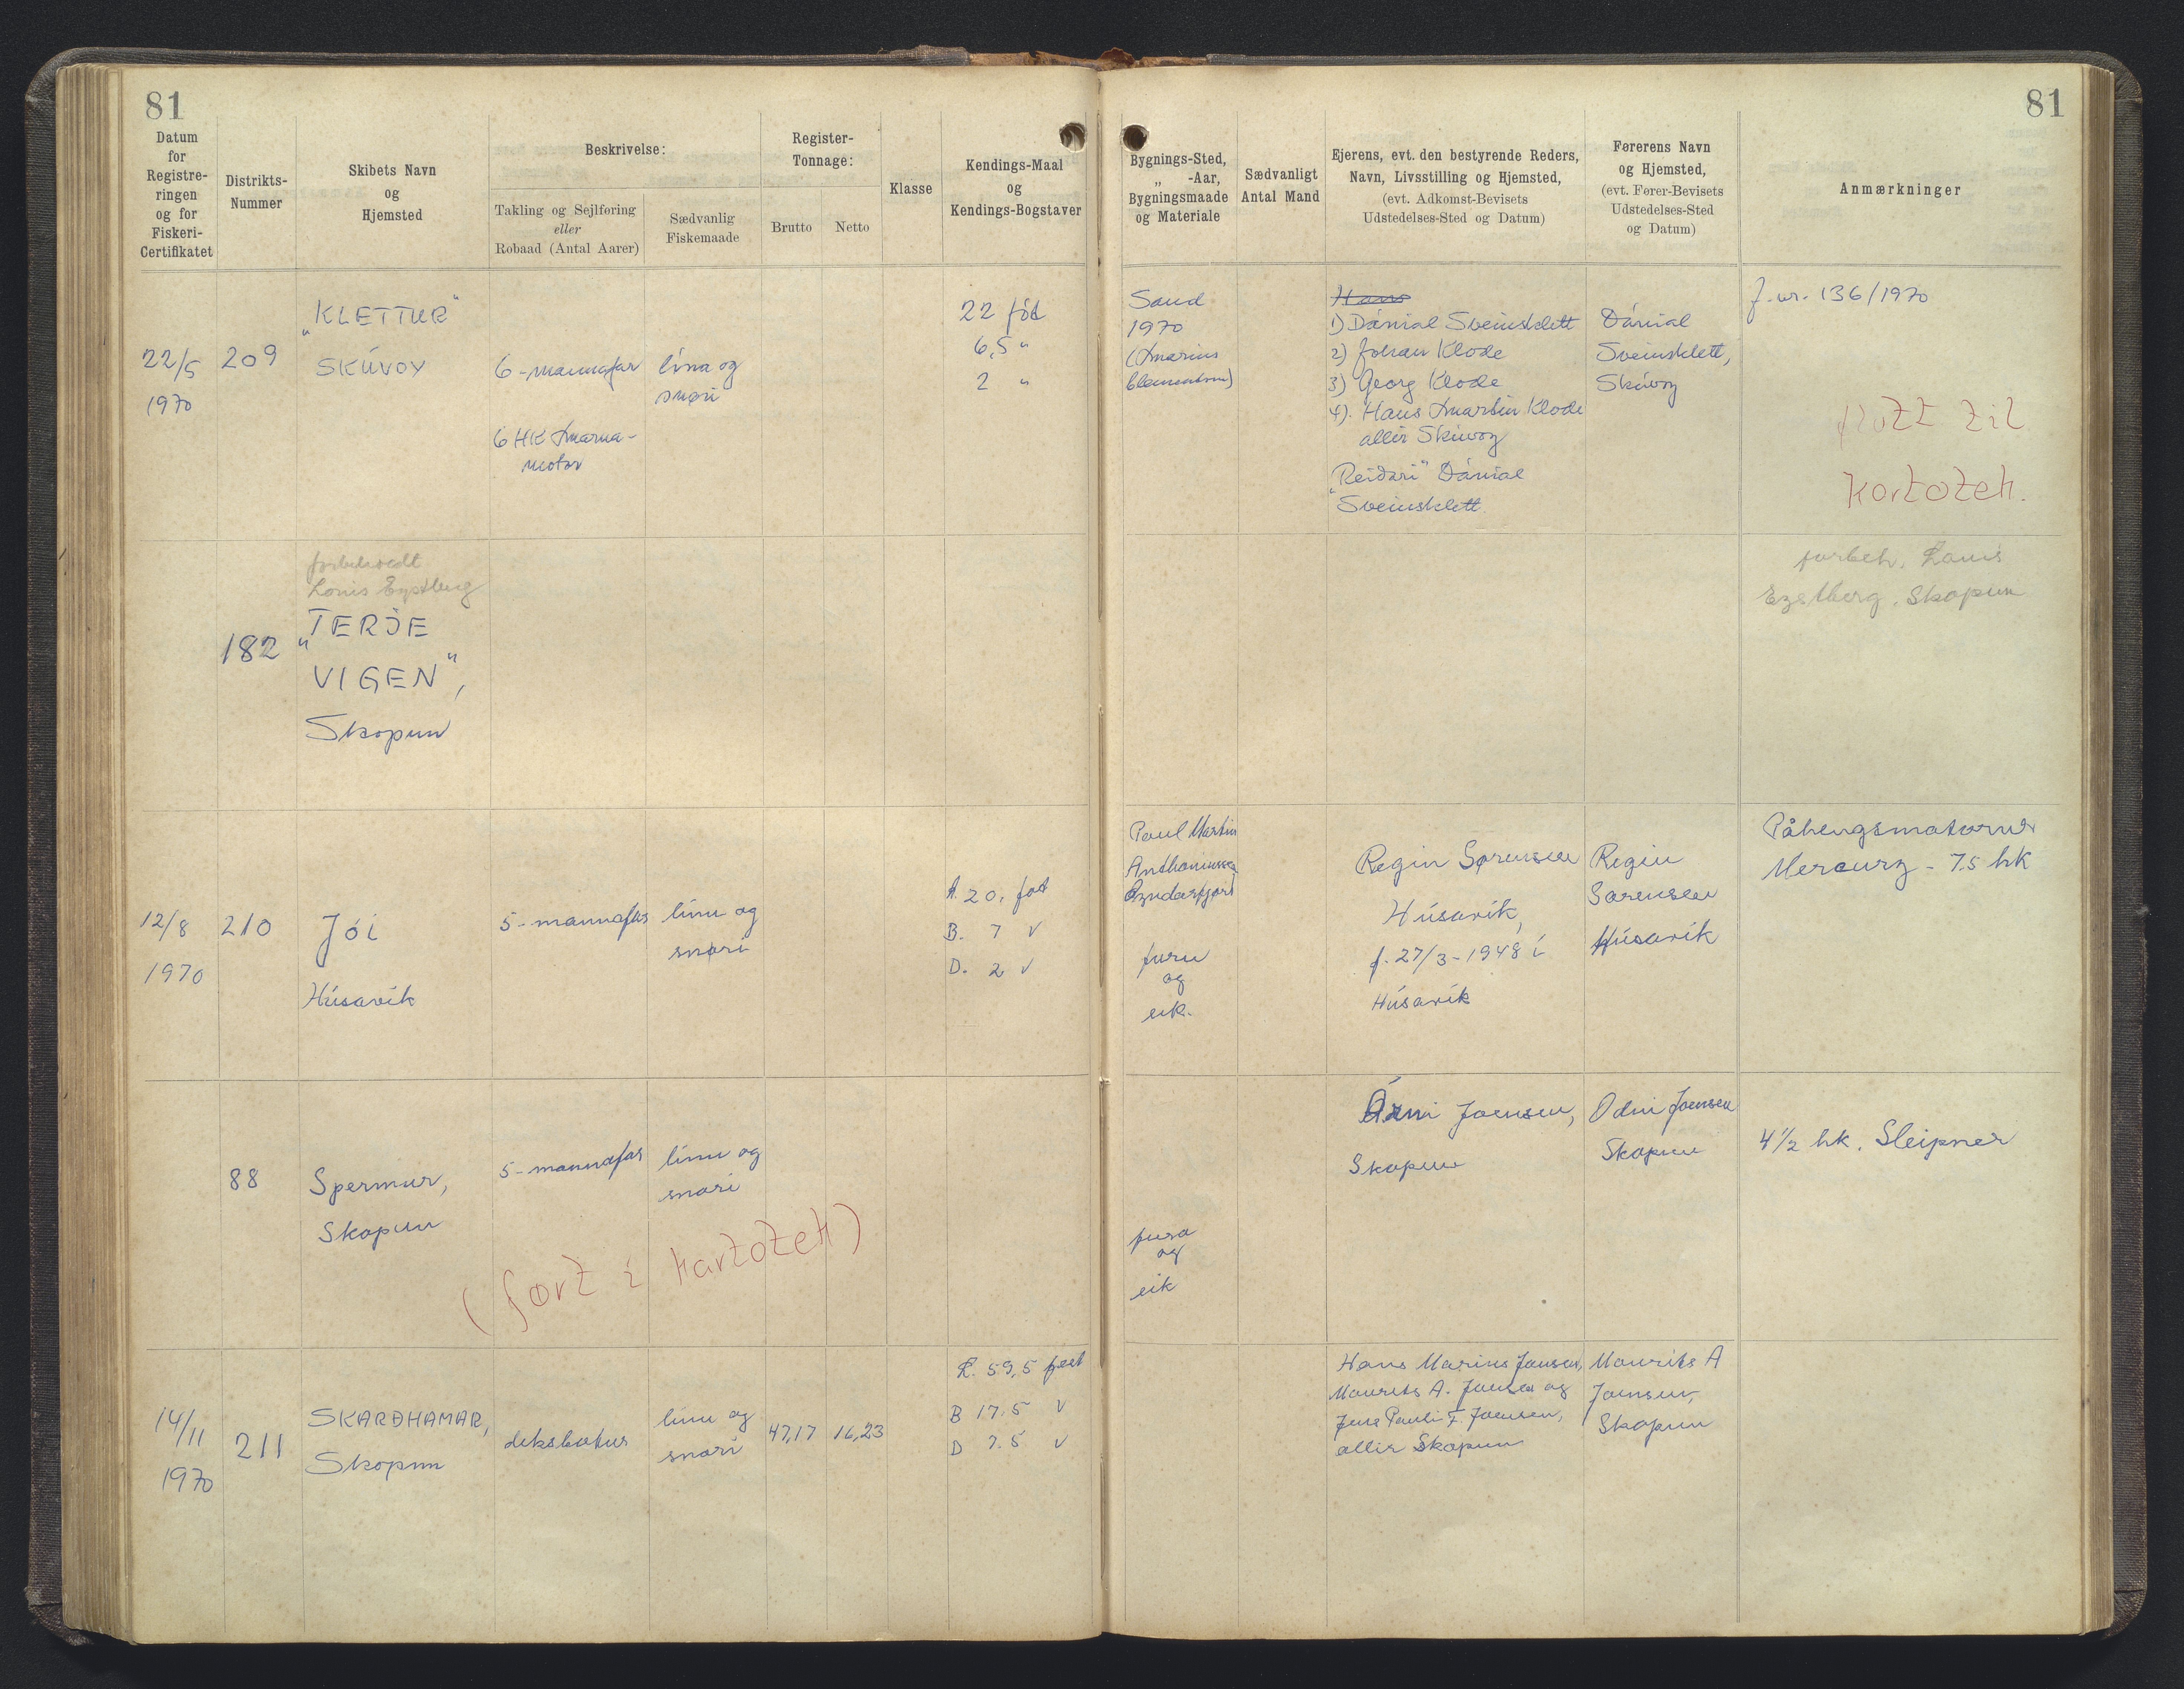 81
81
Datum
for
Registre-
ringen
og for
Fiskeri-
Certifikatet
Distrikts-
Nummer
Skibets Navn
og
Hjemsted
Beskrivelse:
Takling og Sejlføring
eller
Robaad (Antal Aarer)
Sædvanlig
Fiskemaade
Register-
Tonnage:
Brutto
Netto
Klasse
Kendings-Maal
og
Kendings-Bogstaver
Bygnings-Sted,
„ -Aar,
Bygningsmaade
og Materiale
Sædvanligt
Antal Mand
Ejerens, evt. den bestyrende Reders,
Navn, Livsstilling og Hjemsted,
(evt. Adkomst-Bevisets
Udstedelses-Sted og Datum)
Førerens Navn
og Hjemsted,
(evt. Fører-Bevisets
Udstedelses-Sted
og Datum)
Anmærkninger
22/5
1970
209
„KLETTUR"
SKÚVOY
6-mannafar
6 HK Marna-
motor
lína og
snøri
22 fót
6,5 "
2 "
Sand
1970
(Marius
Clementsen)
Hans
1) Dánial Sveinsklett
2) Johan Klode
3) Georg Klode
4). Hans Martin Klode
allir Skúvoy
„Reiðari" Dánial
Sveinsklett.
Dánial
Sveinsklett,
Skúvoy
J.nr. 136/1970
flutt til
Kartotek.
182
forbeholdt
Louis Eystberg
„TERJE
VIGEN",
Skopun
forbeh. Louis
Eystberg, Skopun
12/8
1970
210
Jói
Húsavík
5-mannafar
línu og
snøri
A. 20, fot
B. 7 v
D. 2 v
Poul Martin
Anthoniussen
furu
og
eik.
Regin Sørensen
Húsavík,
f. 27/3-1948 í
Húsavík
Regin
Sørensen
Húsavík
Påhengsmotorur
Mercury - 7.5 hk
88
Spermur,
Skopun
5-mannafar
línu og
snøri
(ført í kartotek)
fura
og
eik
Joensen,
Skopun
Joensen
Skopun
4 1/2 hk. Sleipner
14/11
1970
211
SKARÐHAMAR,
Skopun
deksbátur
línu og
snøri
47,17
16,23
L. 59,5 feet
B 17.5 v
D 7.5 v
Hans Marius Joensen,
Maurits A. Joensen og
Jens Pauli F. Joensen,
allir Skopun
Maurits A
Joensen,
Skopun